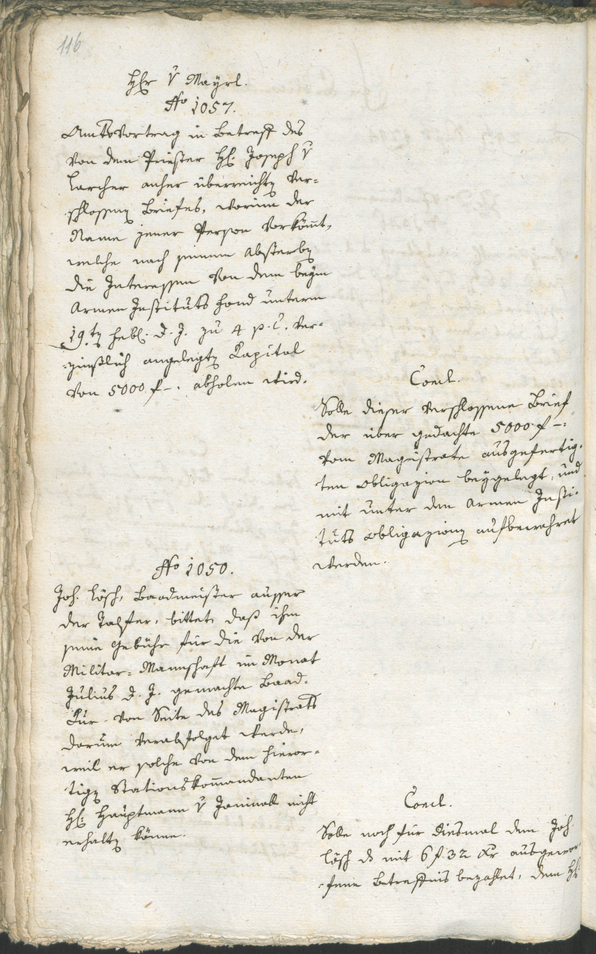 116
H̅r v Mayrl.
No 1057.
Amtsvortrag in Betreff des
von dem Priester H̅. Joseph v
Larcher anher überreichten ver-
schlossenen Briefes, worinn der
Name jener Person vorkömmt,
welche nach seinem Absterben
die Interessen von dem beym
Armen Instituts Fond unterm
19ten d. J. zu 4 p. C. ver-
zinßlich angelegten Kapital
von 5000 f –. abholen wird.
Concl.
Solle dieser verschlossene Brief
der über gedachte 5000 f –:
vom Magistrate ausgefertig-
ten Obligazion beygelegt, und
mit unter den Armen Insti-
tuts Obligazionen aufbewahret
werden.
No 1050.
Joh. Lösch, Baadmeister ausser
der Talfer, bittet, daß ihm
seine Gebühr für die von der
Militar-Mannschaft im Monat
Julius d. J. gemachte Baad-
Kur von Seite des Magistrats
darum verabfolget werde,
weil er solche von dem hieror-
tigen Stationskommandanten
H̅. Hauptmann v nicht
erhalten könne.
Concl.
Solle noch für diesmal dem Joh
Lösch die mit 6 f 32 Xr ausgewor-
fene Betreffnis bezahlet, dem H̅